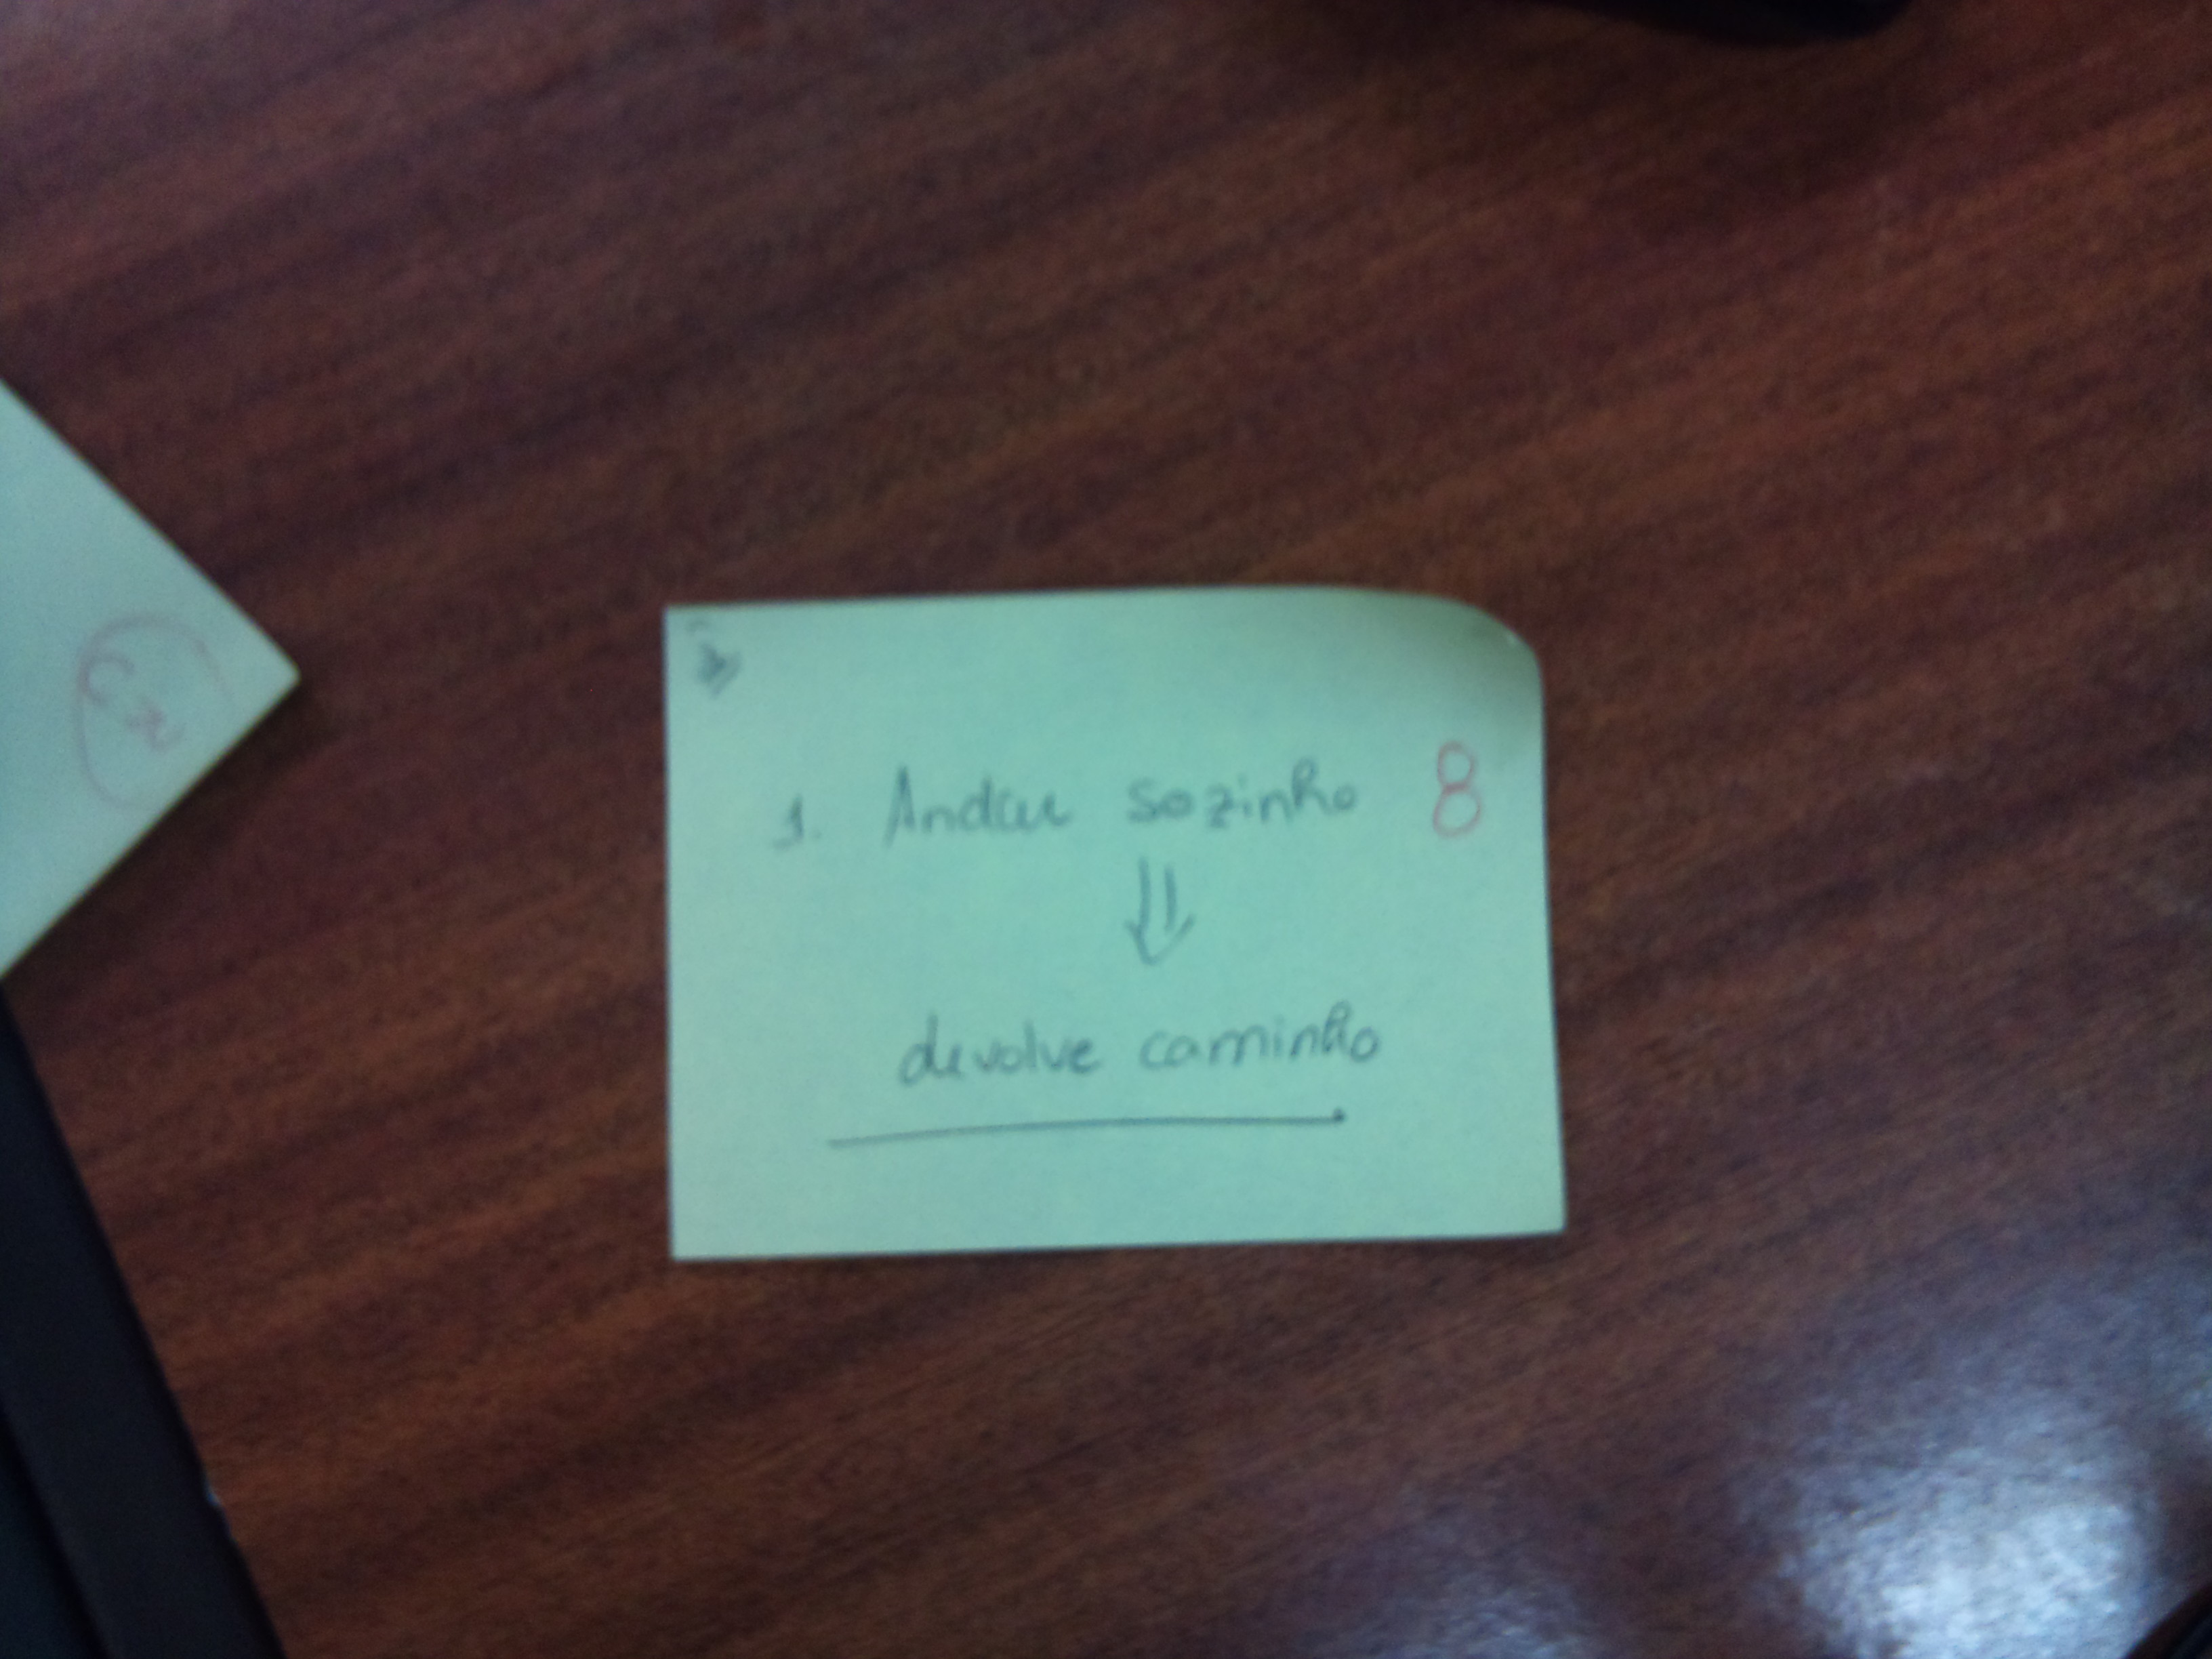 1. Andar sozinho 8
⇓
devolve caminho